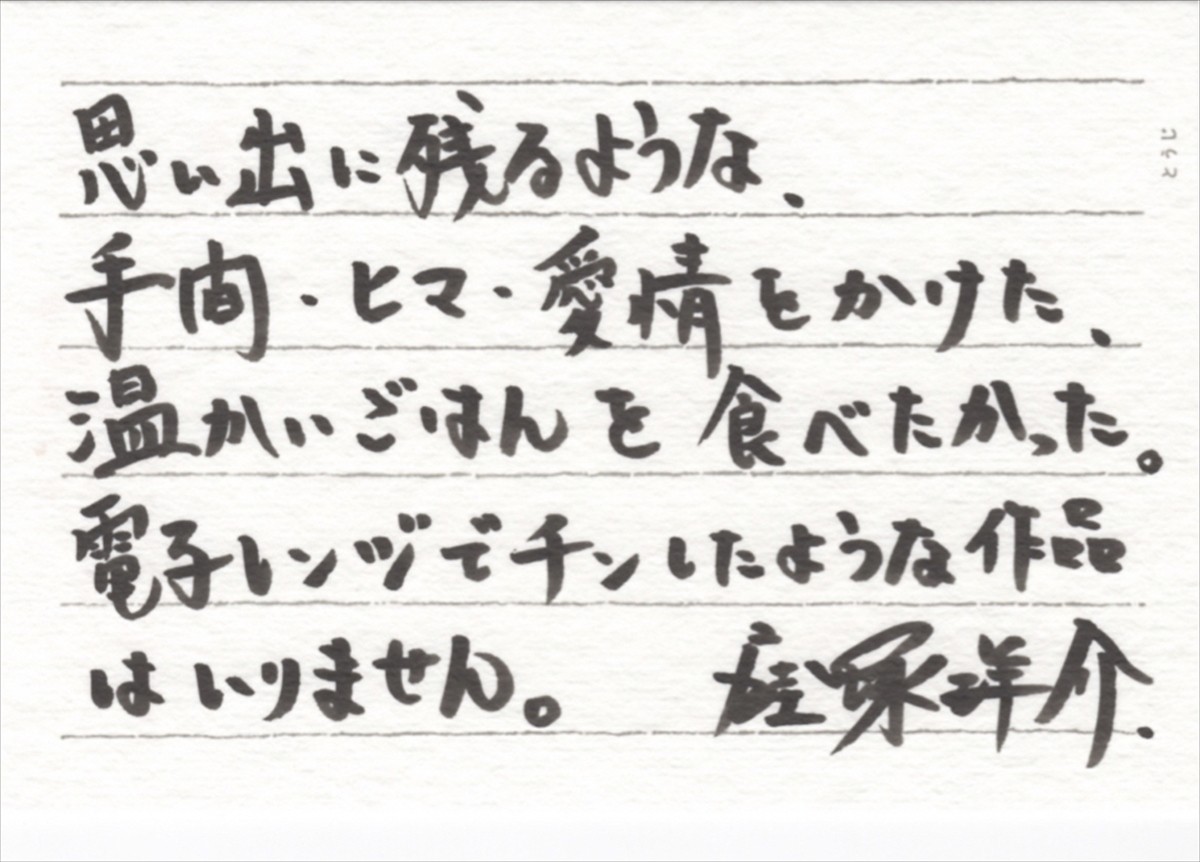 思い出に残るような、
手間・ヒマ・愛情をかけた、
温かいごはんを食べたかった。
電子レンヅでチンしたような作品
はいりません。 塚洋介.